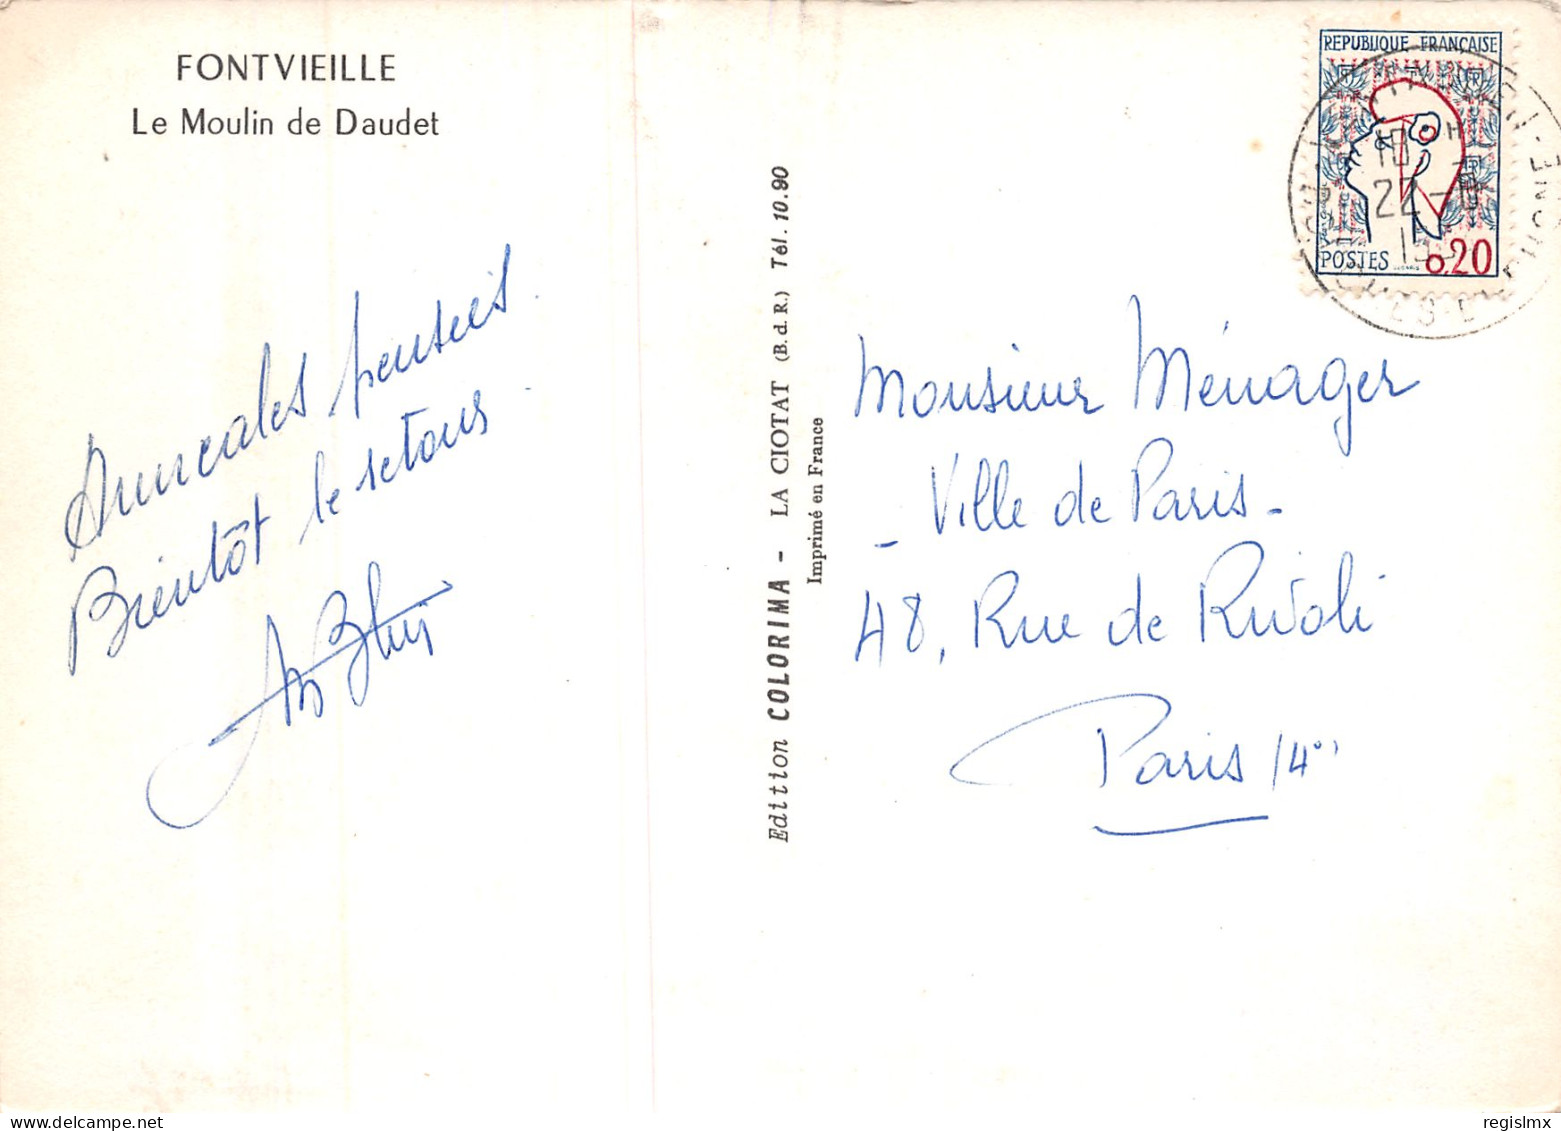 FONTVIEILLE
Le Moulin de Daudet
Amicales pensées.
Bientôt le retour
Edition COLORIMA - LA CIOTAT (B. d. R.) Tél. 10.90
Imprimé en France
REPUBLIQUE FRANÇAISE
POSTES 0,20
22
Monsieur Ménager
- Ville de Paris -
48, Rue de Rivoli
Paris (4°)
regislmx